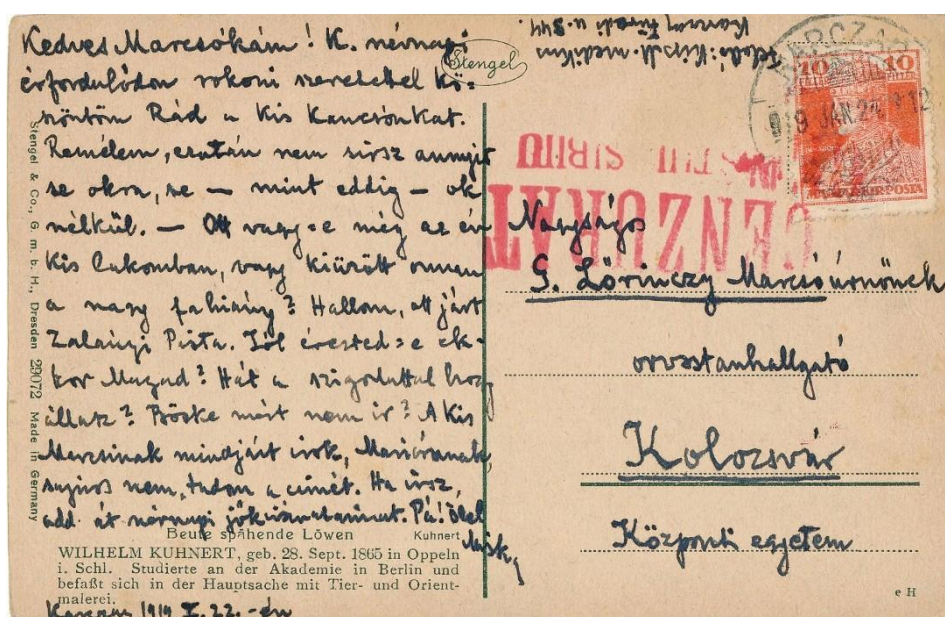 Kedves Marcsókám! K. névnapi
évfordulódon rokoni szeretettel Kö-
szöntöm Rád a Kis
Remélem, ezután nem sírsz annyit
se okra, se — mint eddig — ok
nélkül. — Ott vagy-e még az én
Kis Lakomban, vagy kiűzött onnan
a nagy fahiány? Hallom, ott járt
Zalányi Pista. Jól érezted-e ek-
kor Magad? Hát a szigorlattal hogy
állasz? Böske mért nem ír? A Kis
Marcsinak mindjárt írok,
sajnos nem tudom a címét. Ha írsz,
add át névnapi jókívánataimat. Pá! Ölel
Stengel
Stengel & Co., G. m. b. H., Dresden 29072 Made in Germany
Beute spähende Löwen Kuhnert
WILHELM KUHNERT, geb. 28. Sept. 1865 in Oppeln
i. Schl. Studierte an der Akademie in Berlin und
befaßt sich in der Hauptsache mit Tier- und Orient-
malerei.
1919 I. 22.-én
Feladó: Kiss medikus
u. 844.
919 JAN. 24
10 10
MAGYAR KIR. POSTA
CENZURAT
SIBIIU
Nagyságos
G. Lőrinczy Marcsó úrnőnek
orvostanhallgató
Kolozsvár
Központi egyetem
e H